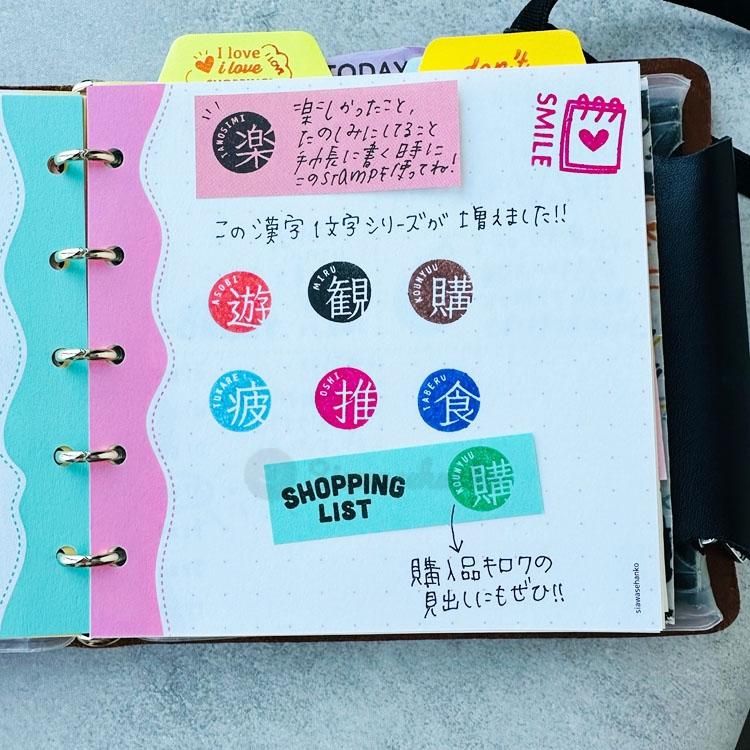 I love
i love
TODAY
don't
SMILE
TANOSIMI
楽
楽しかったこと,
たのしみにしてること
手帳に書く日時に
このstampを使ってね!
この漢字1文字シリーズが増えました!!
ASOBI
遊
MIRU
観
KOUNYUU
購
TUKARE
疲
OSHI
推
TABERU
食
SHOPPING
LIST
KOUNYUU
購
購入品キロクの
見出しにもぜひ!!
siawasehanko